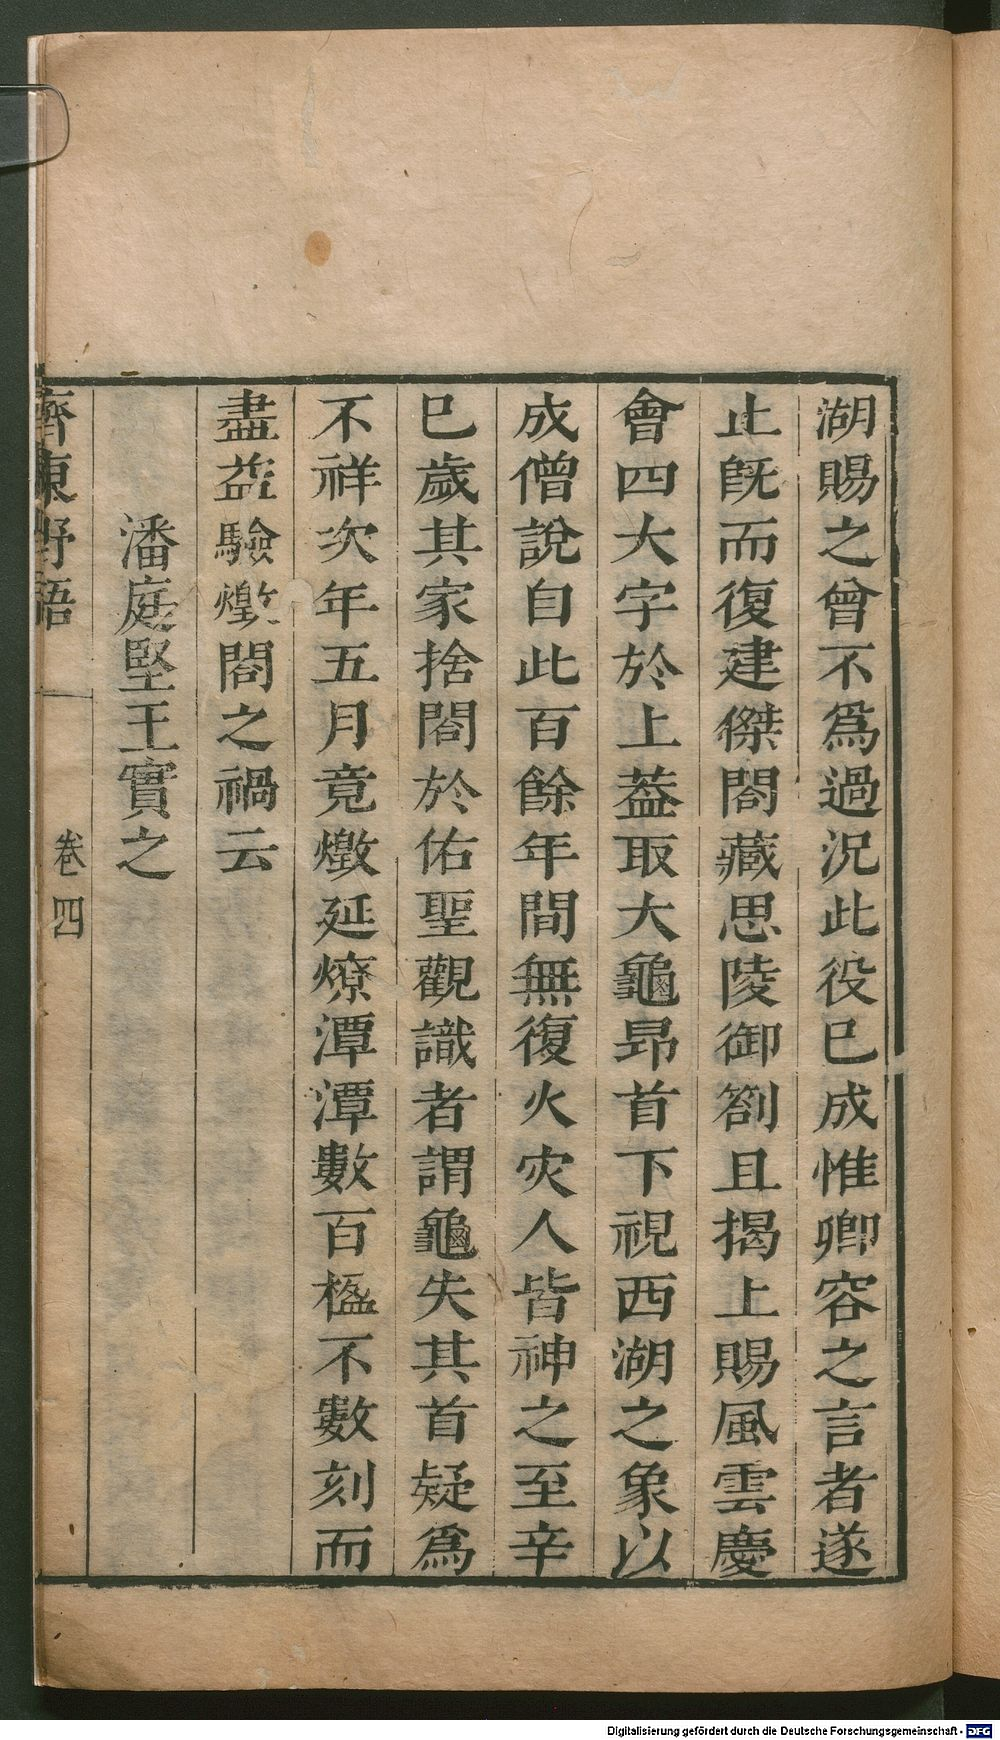 湖賜之曾不爲過況此役巳成惟卿容之言者遂
止旣而復建傑閣藏思陵御劄且揭上賜風雲慶
會四大字於上葢取大龜昻首下視西湖之象以
成僧說自此百餘年間無復火灾人皆神之至辛
巳歲其家捨閣於佑聖觀識者謂龜失其首疑爲
不祥次年五月竟燬延燎潭潭數百楹不數刻而
盡益驗燬閣之禍云
潘庭堅王實之
齊東野語
卷四
Digitalisierung gefördert durch die Deutsche Forschungsgemeinschaft - DFG